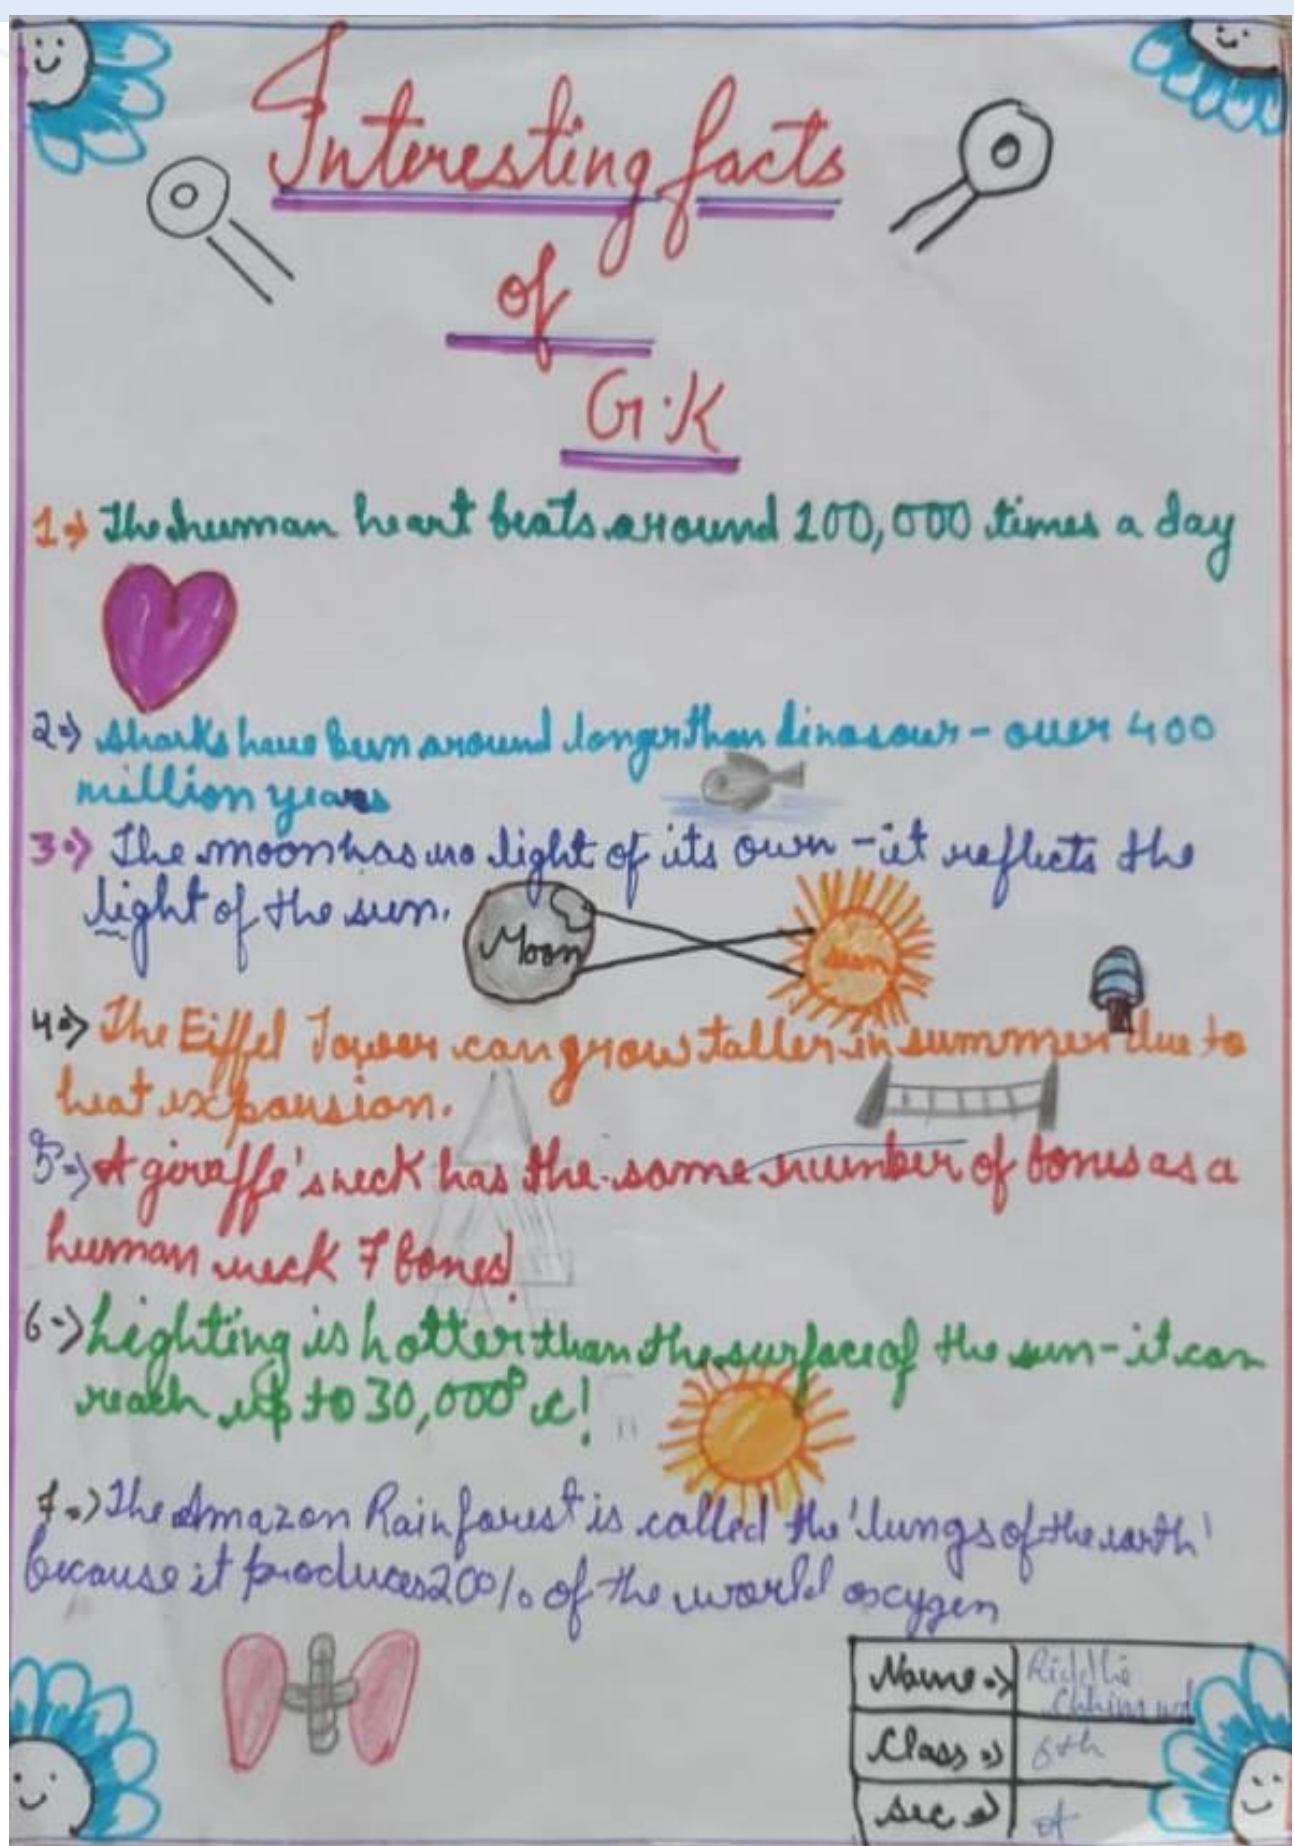 Interesting facts
of
G.K
1⇒ The human heart beats around 100,000 times a day
2⇒ sharks have been around longer than dinasour - over 400
million years
3⇒ The moon has no light of its own - it reflects the
light of the sun.
Moon
sun
4⇒ The Eiffel Tower can grow taller in summer due to
heat expansion.
5⇒ A giraffe's neck has the same number of bones as a
human neck 7 bones!
6⇒ Lighting is hotter than the surface of the sun - it can
reach up to 30,000° c!
7⇒ The Amazon Rainforest is called the 'lungs of the earth'
because it produces 20% of the world oxygen
Name⇒
Class⇒ 6th
Sec⇒ A